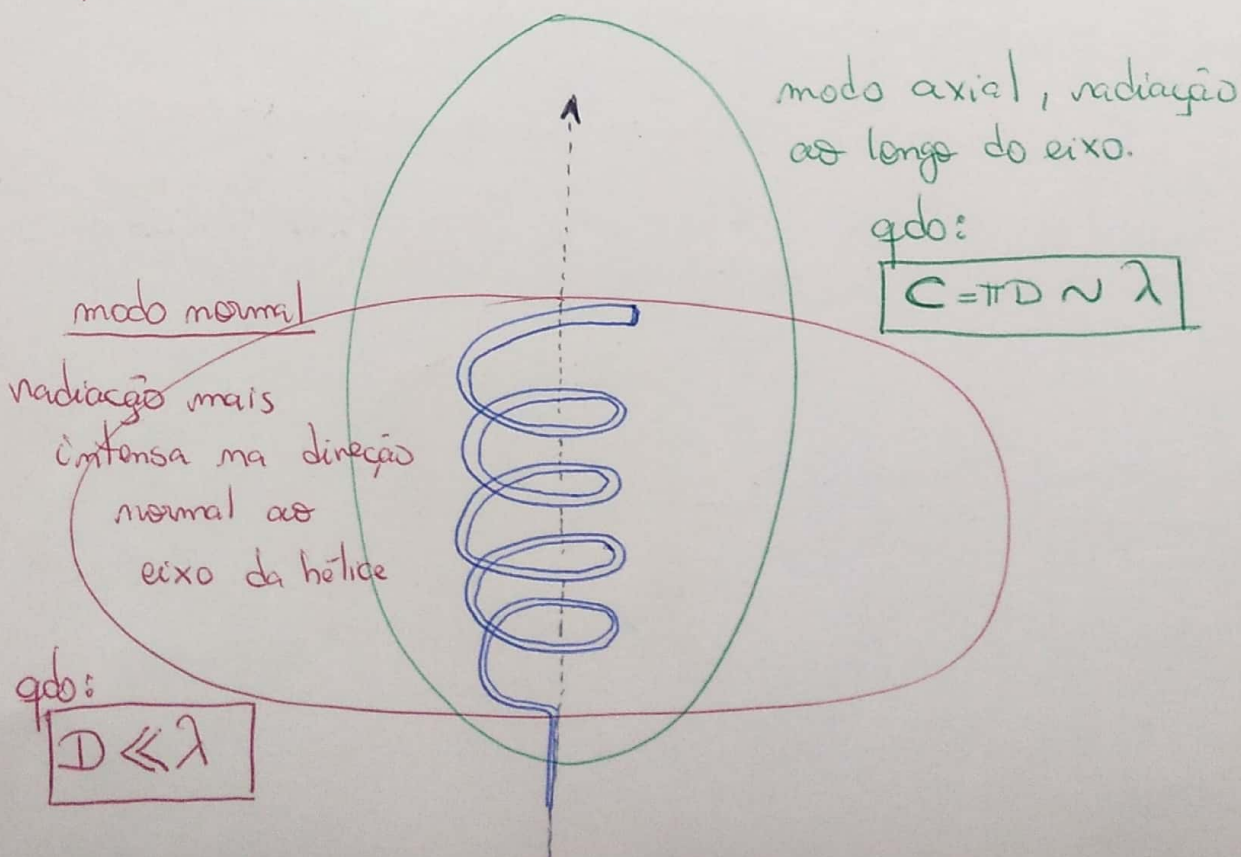 modo axial, radiação
ao longo do eixo.
qdo:
C = πD ~ λ
modo normal
radiação mais
intensa na direção
normal ao
eixo da hélice
qdo:
D ≪ λ